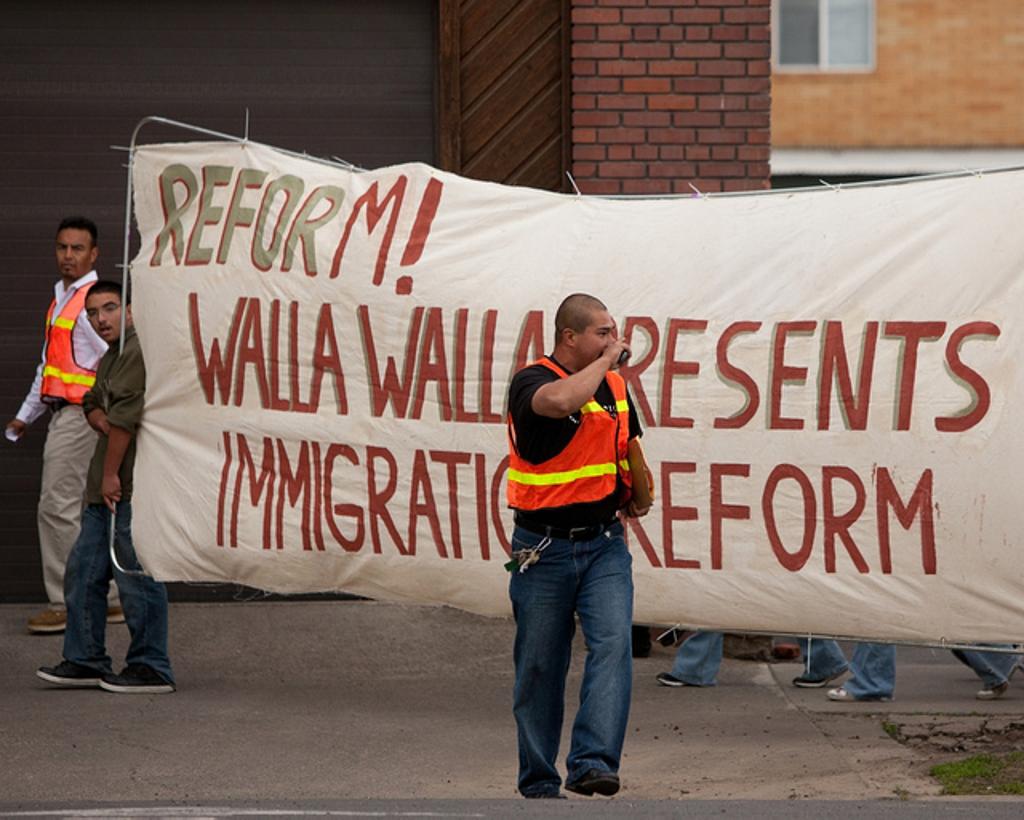 REFORM!
WALLA WALLA RESENTS
IMMIGRATIO REFORM